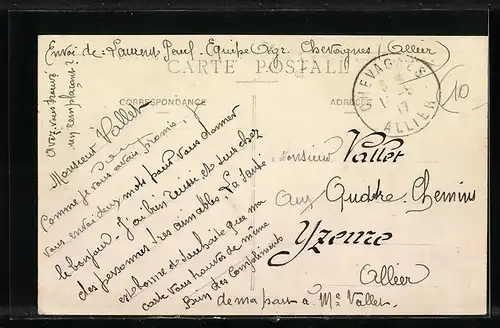 Envoi de: Laurent Paul. Equipe Agr. Chevagnes (Allier)
CARTE POSTALE
CORRESPONDANCE
ADRESSE
CHEVAGNES
17
ALLIER
10
Avez vous trouvé
un remplaçant?
Monsieur Vallet
Comme je vous avais promis, je
vous envoi deux mots pour vous donner
le bonjour. J'ai bien réussi et suis chez
des personnes très aimables. La santé
est bonne et souhaite que ma
carte vous trouve de même
Bien des compliments
de ma part à Me Vallet.
Monsieur Vallet
aux Quatre-Chemins
Yzeure
Allier